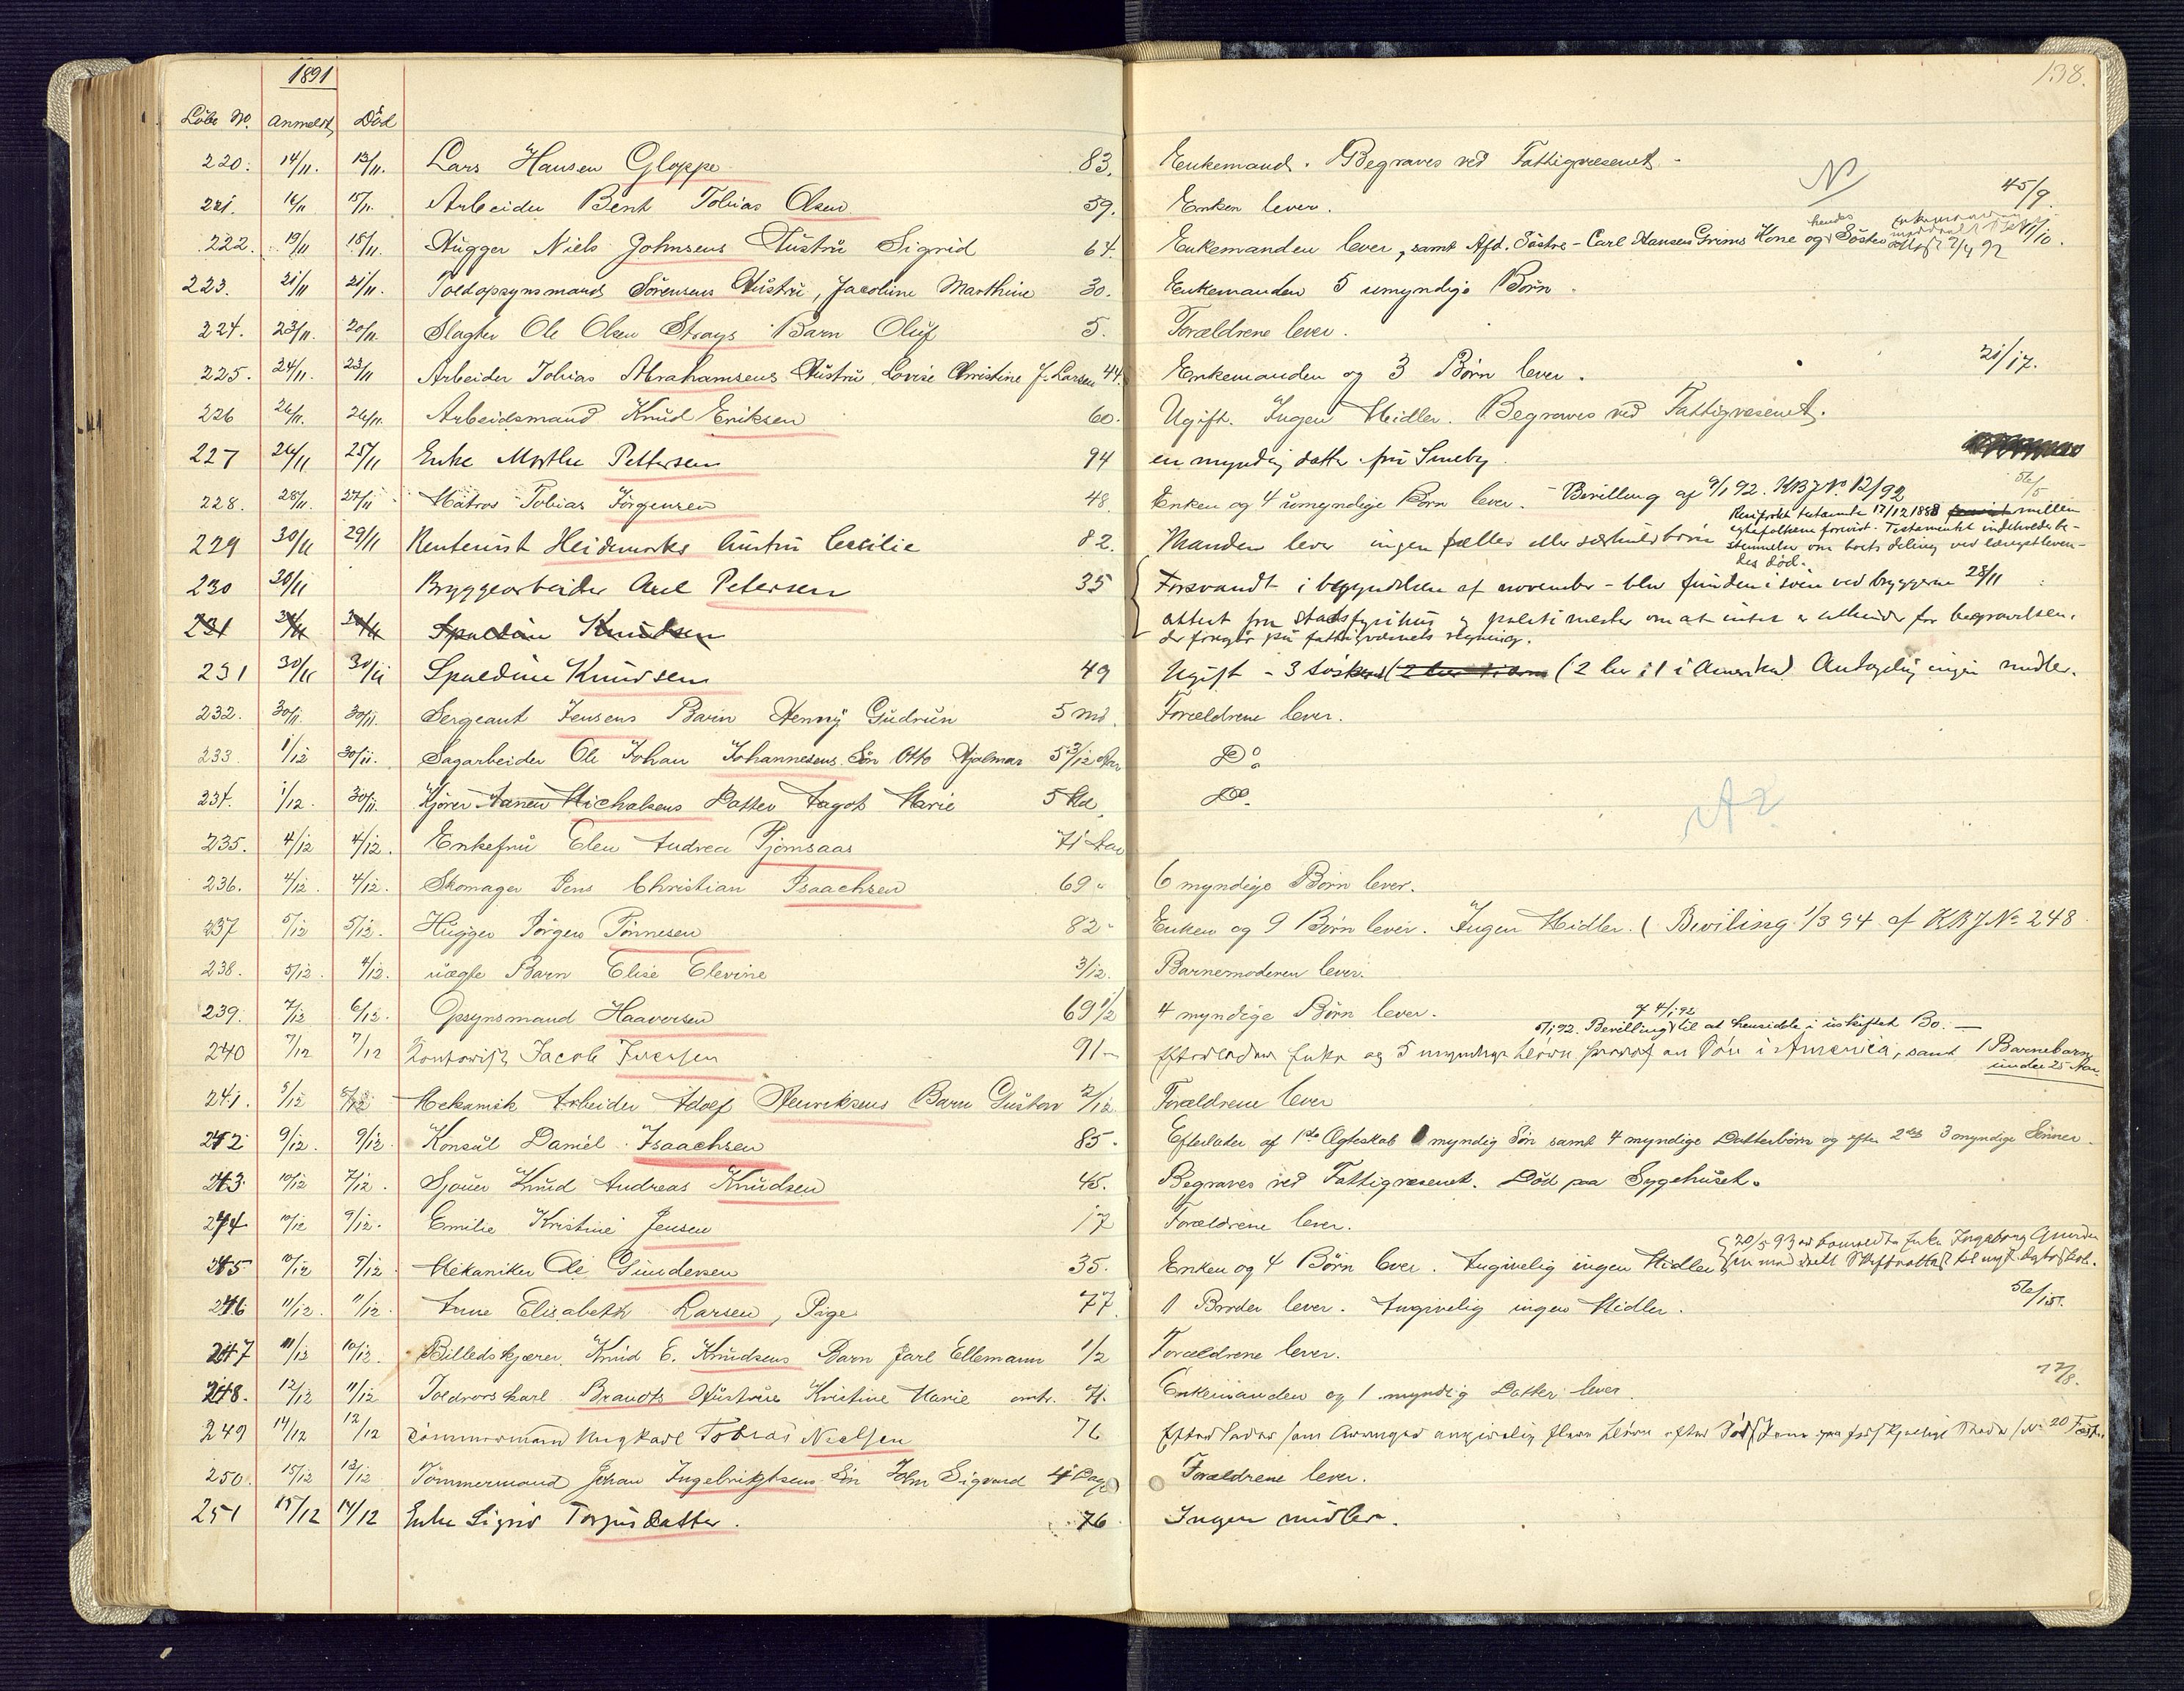 1891
138.
Löbe No. Anmeldt Död
220. 14/11. 13/11. Lars Hansen Gloppe 83. Enkemand. Begraves ved Fattigvæsenet.
N
221. 16/11 15/11. Arbeider Bent Tobias Olsen 59. Enken lever. 45/9.
222. 19/11 18/11. Hugger Niels Johnsens Hustru Sigrid 64. Enkemanden lever, samt Afd. Söstre - Carl Hansen Grims Kone og hendes Söster 11/10.
223. 21/11 21/11. Toldopsynsmand Sörensens Hustru, Jacobine Marthine 30. Enkemanden 5 umyndige Börn.
224. 23/11. 20/11. Slagter Ole Olsen Strays Barn Oluf 5. Forældrene lever.
225. 24/11. 23/11 Arbeider Tobias Abrahamsens Hustru Lovise Christine f. Larsen 44. Enkemanden og 3 Börn lever. 21/17.
226 26/11. 26/11. Arbeidsmand Knud Eriksen 60. Ugift. Ingen Midler. Begraves ved Fattigvesenet.
227 26/11 25/11 Enke Marthe Pettersen 94 en myndig datter fru Smeby.
228. 28/11. 27/11 Matros Tobias Jörgensen 48. Enken og 4 umyndige Börn lever. - Bevilling af 9/1 92. KBJ No. 12/92 56/5
229 30/11 29/11 Renterist Heidemarks Hustru Cecilie 82. Manden lever ingen fælles eller særkuldsbörn
Resiprokt testamente 17/12 1888 mellem
egtefolkene forevist. Testamentet indeholder be-
stemmelse om boets deling ved længstleven-
des död.
230 30/11 Bryggearbeider Axel Petersen 35 Forsvandt i begyndelsen af november - blev funden i söen ved bryggerne 28/11
attest fra Stadsfysikus og politimester om at intet er til hinder for begravelsen,
der foregår på fattigvæsenets regning.
231 30/11 30/11 Spaldine Knudsen
231 30/11 30/11 Spaldine Knudsen 49 Ugift - 3 Söskend (2 her 1 i Amerika) Antagelig ingen midler.
232. 30/11. 30/11. Sergeant Jensens Barn Henny Gudrun 5 Md. Forældrene lever.
233. 1/12 30/11. Sagarbeider Ole Johan Johannesens Sön Otto Hjalmar 5 3/12 Aar Do
234. 1/12. 30/11. Kjörer Aanen Michalsens Datter Aagot Marie 5 Md. Do.
235. 4/12 4/12. Enkefru Elen Andrea Tjomsaas 71 Aar
236. 4/12. 4/12. Skomager Jens Christian Isaachsen 69 " 6 myndige Börn lever.
237 5/12 5/12. Hugger Jörgen Tönnesen 82 " Enken og 9 Börn lever. Ingen Midler. ( Beviling 1/3 94 af KBJ No 248
238. 5/12. 4/12. uægte Barn Elise Elevine 3/12. Barnemoderen lever.
239. 7/12 6/12. Opsynsmand Haaversen 69 1/2 4 myndige Börn lever.
af 4/1 92
5/1 92. Bevilling til at hensidde i uskiftet Bo. -
240 7/12 7/12 Jacob Iversen 91 - Efterlader Enke og 5 myndige Börn hvoraf en Sön i America, samt 1 Barnebarn
under 25 Aar.
241. 8/12 8/12 Mekanisk Arbeider Adolf Henriksens Barn Gustav 2/12 Forældrene lever
242 9/12. 9/12. Konsul Daniel Isaachsen 85. Efterlader af 1ste Ægteskab myndig Sön samt 4 myndige Datterbörn og efter 2det 3 myndige Sönner.
243. 10/12 7/12. Sjouer Knud Andreas Knudsen 45. Begraves ved Fattigvæsenet. Död paa Sygehuset.
244 10/12 9/12. Emilie Kristine Jensen 17 Forældrene lever.
245 10/12 9/12. Mekaniker Ole Gundersen 35. Enken og 4 Börn lever. Angivelig ingen Midler
20/5 93 Enke Ingeborg Gunder
246 11/12. 11/12. Anne Elisabeth Larsen, Pige 77 1 Broder lever. Angivelig ingen Midler. 56/151.
247 11/12 10/12. Billedskjærer Knud E. Knudsens Barn Jarl Ellemann 1/2 Forældrene lever.
248. 12/12 11/12 Toldrorskarl Brandts Hustrue Kristine Marie omtr. 71. Enkemanden og 1 myndig Datter lever. 12/8.
249 14/12 12/12 Tömmermand Ungkarl Tobias Nielsen 76
250. 15/12 13/12 Tömmermand Johan Ingebrigtsens Sön John Sigvard 4 Dage Forældrene lever.
251 15/12 14/12 Enke Sigrid Torjusdatter. 76 Ingen midler.